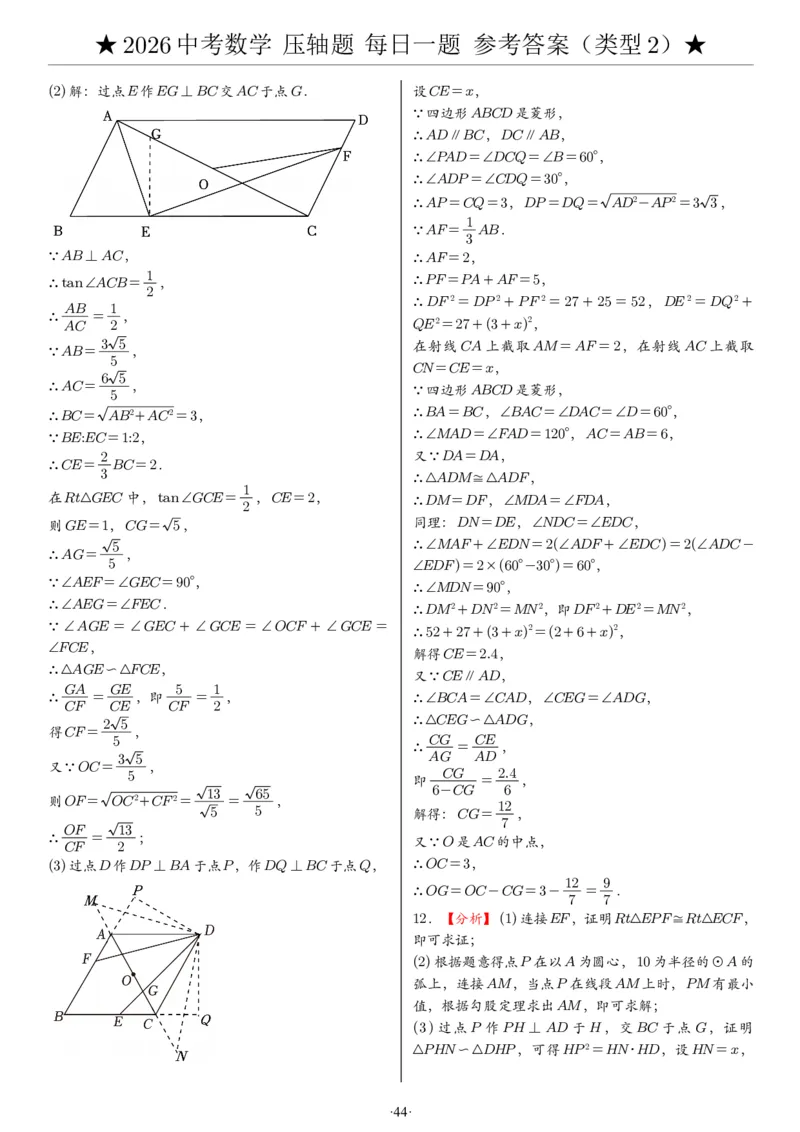 ★2026中考数学 压轴题 每日一题 参考答案（类型2）★
(2)解：过点E作EG⊥BC交AC于点G．
A
D
G
F
O
B
E
C
∵AB⊥AC，
∴tan∠ACB=1/2，
∴AB/AC=1/2，
∵AB=3√5/5，
∴AC=6√5/5，
∴BC=√AB²+AC²=3，
∵BE:EC=1:2，
∴CE=2/3BC=2．
在Rt△GEC中，tan∠GCE=1/2，CE=2，
则GE=1，CG=√5，
∴AG=√5/5，
∵∠AEF=∠GEC=90°，
∴∠AEG=∠FEC．
∵∠AGE=∠GEC+∠GCE=∠OCF+∠GCE=
∠FCE，
∴△AGE∽△FCE，
∴GA/CF=GE/CE，即5/CF=1/2，
得CF=2√5/5，
又∵OC=3√5/5，
则OF=√OC²+CF²=√13/√5=√65/5，
∴OF/CF=√13/2；
(3)过点D作DP⊥BA于点P，作DQ⊥BC于点Q，
M
P
A
D
F
O
G
B
E
C
Q
N
设CE=x，
∵四边形ABCD是菱形，
∴AD∥BC，DC∥AB，
∴∠PAD=∠DCQ=∠B=60°，
∴∠ADP=∠CDQ=30°，
∴AP=CQ=3，DP=DQ=√AD²−AP²=3√3，
∵AF=1/3AB．
∴AF=2，
∴PF=PA+AF=5，
∴DF²=DP²+PF²=27+25=52，DE²=DQ²+
QE²=27+(3+x)²，
在射线CA上截取AM=AF=2，在射线AC上截取
CN=CE=x，
∵四边形ABCD是菱形，
∴BA=BC，∠BAC=∠DAC=∠D=60°，
∴∠MAD=∠FAD=120°，AC=AB=6，
又∵DA=DA，
∴△ADM≅△ADF，
∴DM=DF，∠MDA=∠FDA，
同理：DN=DE，∠NDC=∠EDC，
∴∠MAF+∠EDN=2(∠ADF+∠EDC)=2(∠ADC−
∠EDF)=2×(60°−30°)=60°，
∴∠MDN=90°，
∴DM²+DN²=MN²，即DF²+DE²=MN²，
∴52+27+(3+x)²=(2+6+x)²，
解得CE=2.4，
又∵CE∥AD，
∴∠BCA=∠CAD，∠CEG=∠ADG，
∴△CEG∽△ADG，
∴CG/AG=CE/AD，
即CG/6−CG=2.4/6，
解得：CG=12/7，
又∵O是AC的中点，
∴OC=3，
∴OG=OC−CG=3−12/7=9/7．
12．【分析】(1)连接EF，证明Rt△EPF≅Rt△ECF，
即可求证；
(2)根据题意得点P在以A为圆心，10为半径的⊙A的
弧上，连接AM，当点P在线段AM上时，PM有最小
值，根据勾股定理求出AM，即可求解；
(3)过点P作PH⊥AD于H，交BC于点G，证明
△PHN∽△DHP，可得HP²=HN·HD，设HN=x，
·44·